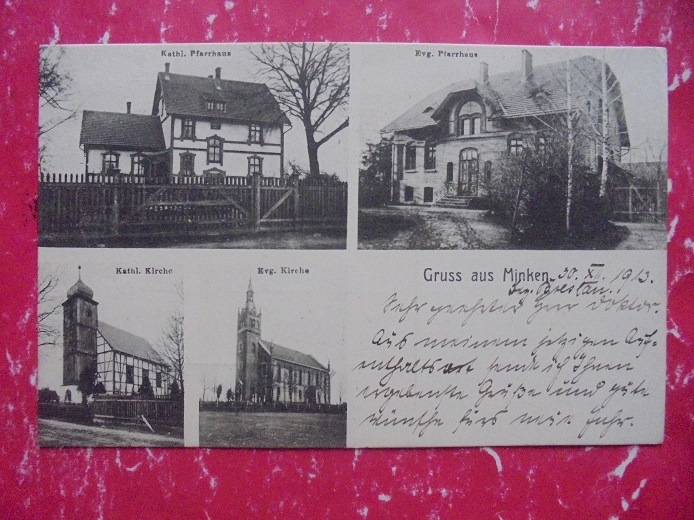 Kathl. Pfarrhaus
Evg. Pfarrhaus
Kathl. Kirche
Evg. Kirche
Gruss aus Minken 30. XII. 1913.
Bez. Breslau.
Sehr geehrter Herr Doktor.
Aus meinem jetzigen Auf-
enthaltsort sende ich Ihnen
ergebenste Grüße und gute
wünsche fürs neue Jahr.